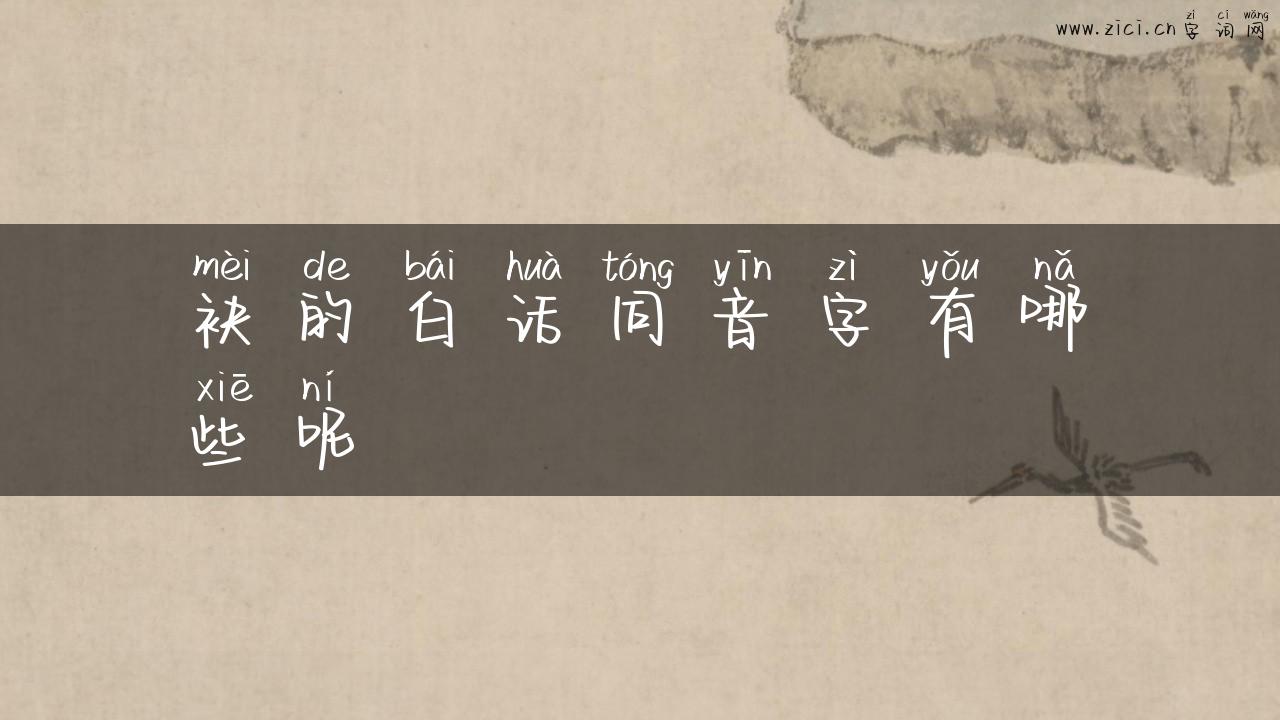 zì cí wǎng
www.zici.cn字词网
mèi de bái huà tóng yīn zì yǒu nǎ
袂的白话同音字有哪
xiē ní
些呢